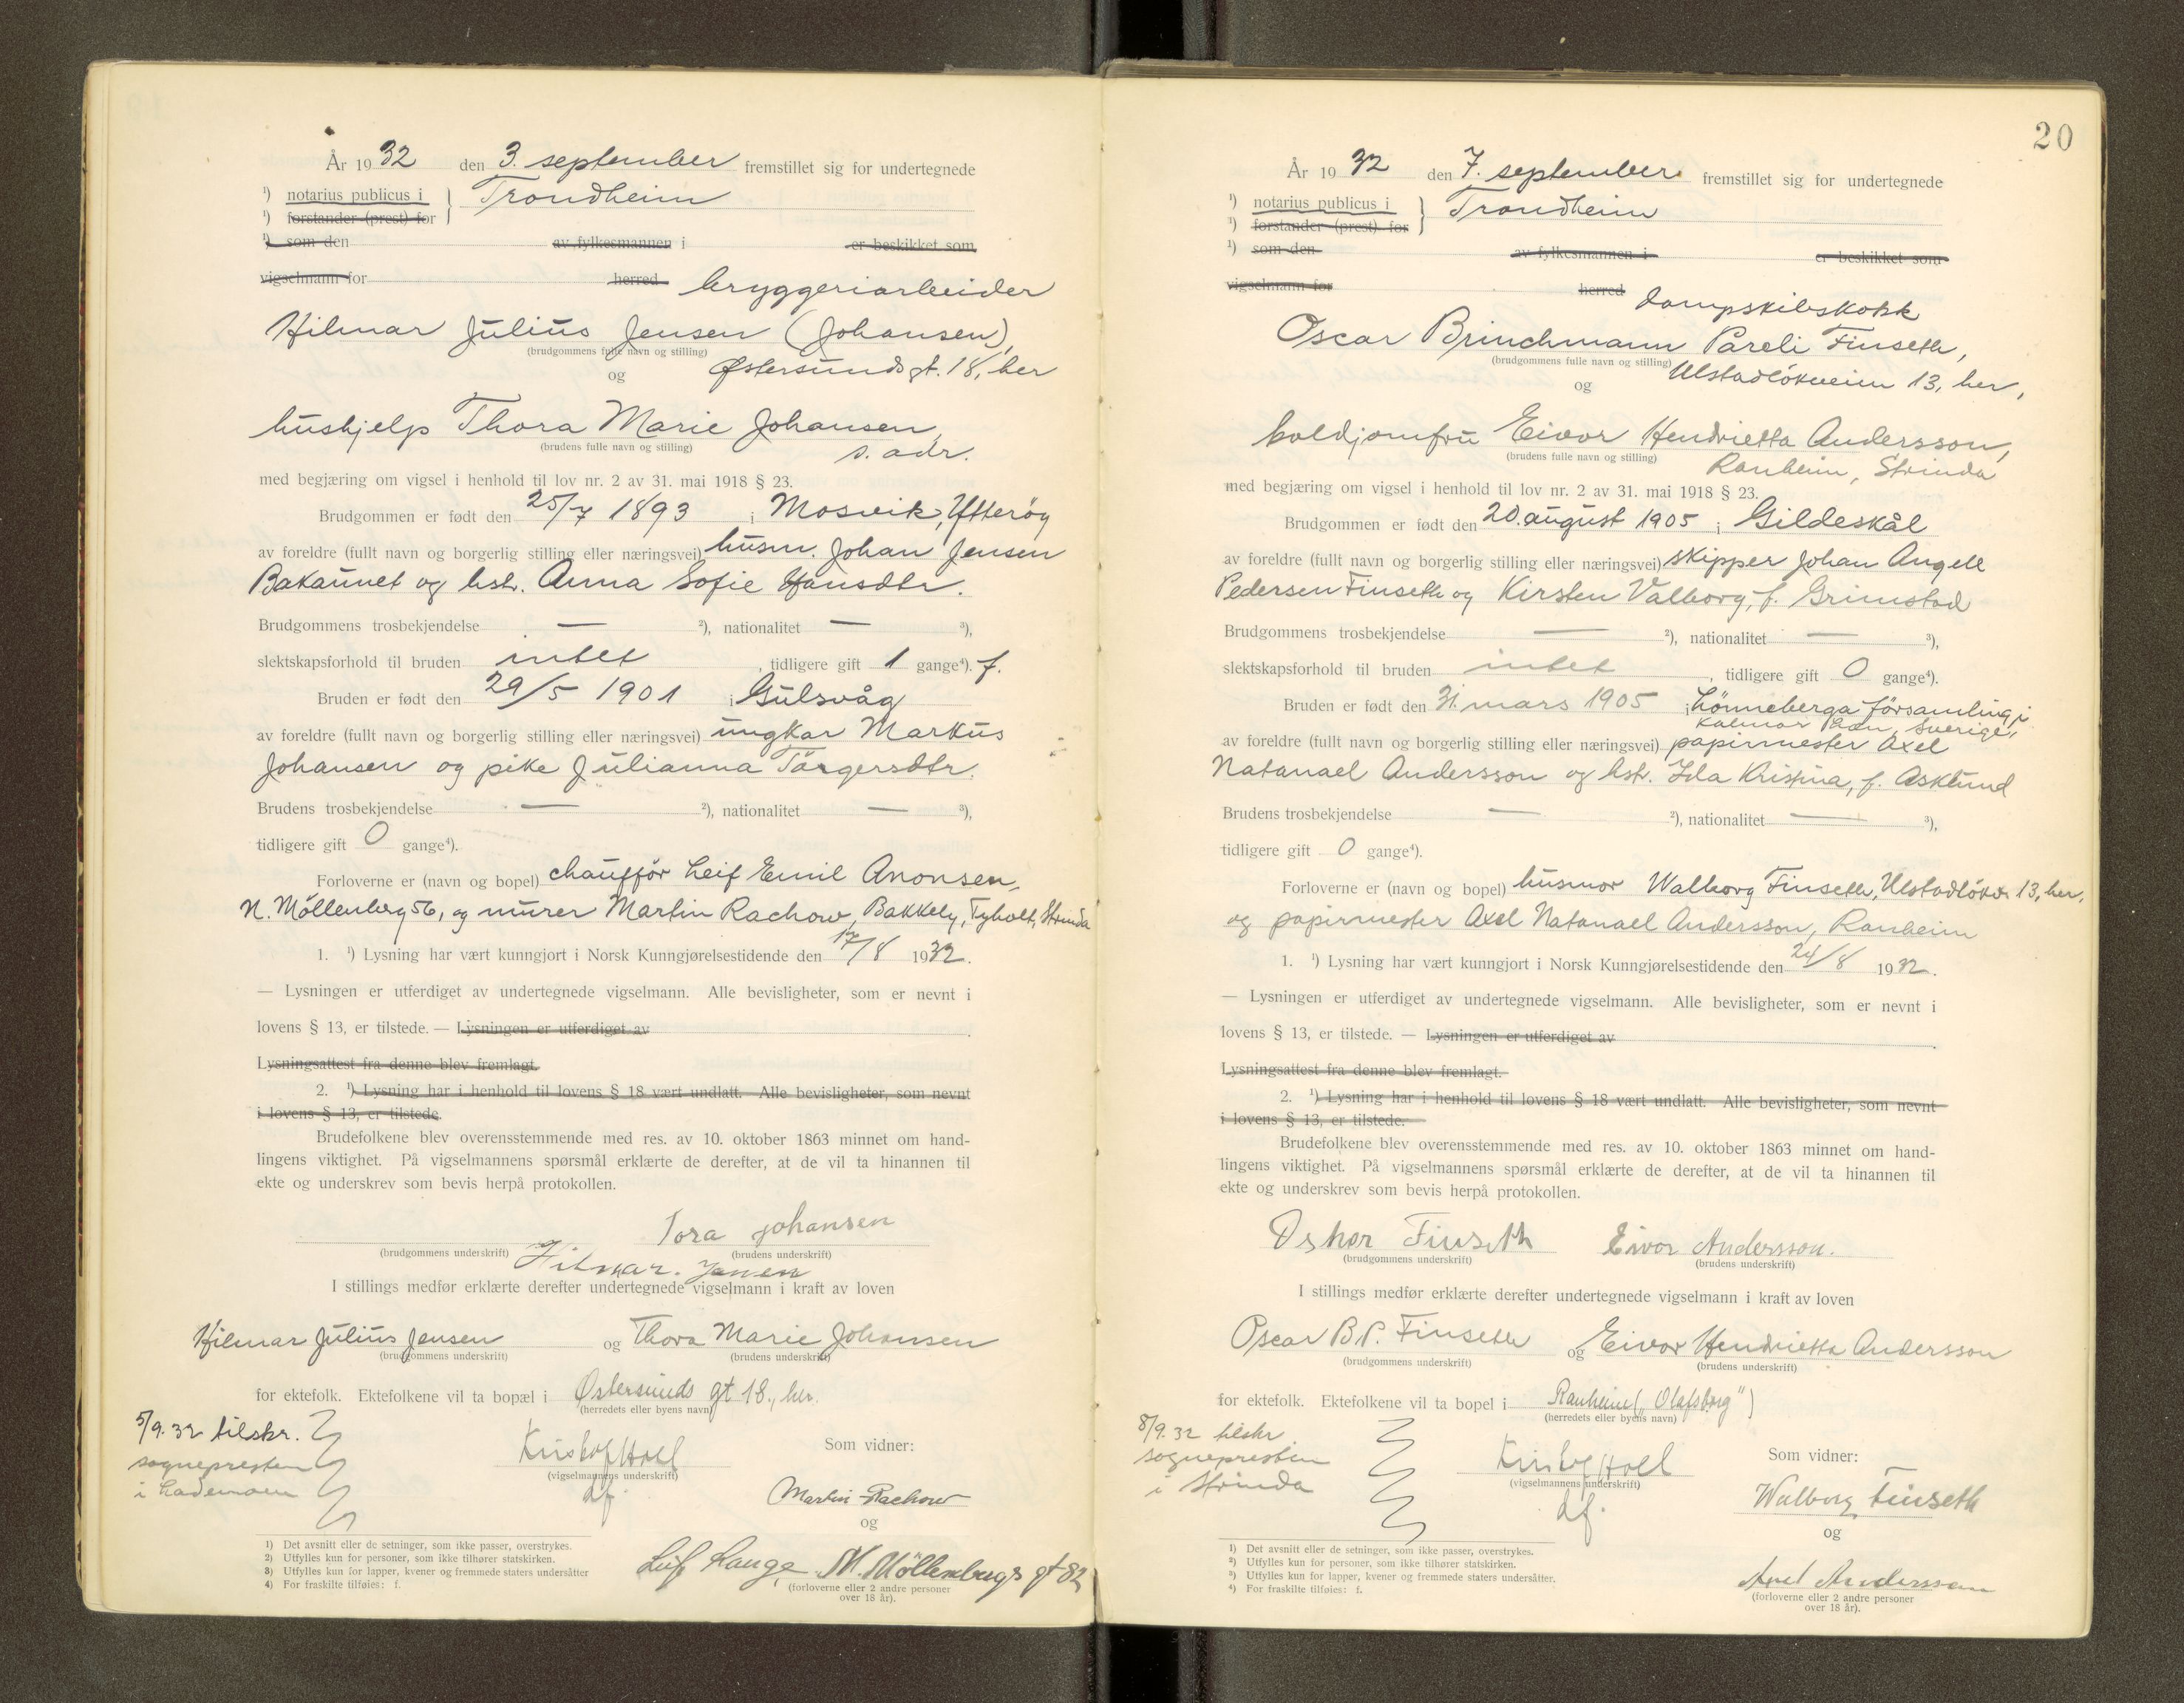 År 1932 den 3. september fremstillet sig for undertegnede
¹) notarius publicus i } Trondheim
¹) forstander (prest) for
¹) som den av fylkesmannen i er beskikket som
vigselmann for herred bryggeriarbeider
Hilmar Julius Jensen (Johansen),
(brudgommens fulle navn og stilling)
og Østersundsgt. 18, her
hushjelp Thora Marie Johansen,
(brudens fulle navn og stilling)
s. adr.
med begjæring om vigsel i henhold til lov nr. 2 av 31. mai 1918 § 23.
Brudgommen er født den 25/7 1893 i Mosvik, Ytterøy
av foreldre (fullt navn og borgerlig stilling eller næringsvei) husm. Johan Jensen
Bakaunet og hstr. Anna Sofie Hansdtr.
Brudgommens trosbekjendelse — ²), nationalitet — ³),
slektskapsforhold til bruden intet, tidligere gift 1 gange⁴). f.
Bruden er født den 29/5 1901 i Gulsvåg
av foreldre (fullt navn og borgerlig stilling eller næringsvei) ungkar Markus
Johansen og pike Julianna Torgersdtr.
Brudens trosbekjendelse — ²), nationalitet — ³),
tidligere gift 0 gange⁴).
Forloverne er (navn og bopel) chauffør Leif Emil Aronsen,
N. Möllenberg 56, og murer Martin Rachow, Bakkely, Tyholt, Strinda
1. ¹) Lysning har vært kunngjort i Norsk Kunngjørelsestidende den 17/8 1932.
— Lysningen er utferdiget av undertegnede vigselmann. Alle bevisligheter, som er nevnt i
lovens § 13, er tilstede. — Lysningen er utferdiget av .
Lysningsattest fra denne blev fremlagt.
2. ¹) Lysning har i henhold til lovens § 18 vært undlatt. Alle bevisligheter, som nevnt
i lovens § 13, er tilstede.
Brudefolkene blev overensstemmende med res. av 10. oktober 1863 minnet om hand-
lingens viktighet. På vigselmannens spørsmål erklærte de derefter, at de vil ta hinannen til
ekte og underskrev som bevis herpå protokollen.
Tora Johansen
(brudgommens underskrift) (brudens underskrift)
Hilmar. Jensen
I stillings medfør erklærte derefter undertegnede vigselmann i kraft av loven
Hilmar Julius Jensen og Thora Marie Johansen
(brudgommens underskrift) (brudens underskrift)
for ektefolk. Ektefolkene vil ta bopæl i Østersunds gt 18., her.
(herredets eller byens navn)
5/9.32 tilskr.
sognepresten
i Lademoen
Kristof Holl
(vigselmannens underskrift)
df.
Som vidner:
Martin Rachow
og
Leif Lange. N. Möllenbergs gt 82
(forloverne eller 2 andre personer
over 18 år).
1) Det avsnitt eller de setninger, som ikke passer, overstrykes.
2) Utfylles kun for personer, som ikke tilhører statskirken.
3) Utfylles kun for lapper, kvener og fremmede staters undersåtter
4) For fraskilte tilføies: f.
20
År 1932 den 7. september fremstillet sig for undertegnede
¹) notarius publicus i } Trondheim
¹) forstander (prest) for
¹) som den av fylkesmannen i er beskikket som
vigselmann for herred dampskibskokk
Oscar Brinchmann Pareli Finseth,
(brudgommens fulle navn og stilling)
og Ulstadløkveien 13, her,
koldjomfru Eivor Henrietta Andersson,
(brudens fulle navn og stilling)
Ranheim, Strinda
med begjæring om vigsel i henhold til lov nr. 2 av 31. mai 1918 § 23.
Brudgommen er født den 20. august 1905 i Gildeskål
av foreldre (fullt navn og borgerlig stilling eller næringsvei) skipper Johan Angell
Pedersen Finseth og Kirsten Valborg, f. Grimstad
Brudgommens trosbekjendelse — ²), nationalitet — ³),
slektskapsforhold til bruden intet, tidligere gift 0 gange⁴).
Bruden er født den 31. mars 1905 i Lönneberga församling i
Kalmar län, Sverige,
av foreldre (fullt navn og borgerlig stilling eller næringsvei) papirmester Axel
Natanael Andersson og hstr. Ida Kristina, f. Asklund
Brudens trosbekjendelse — ²), nationalitet — ³),
tidligere gift 0 gange⁴).
Forloverne er (navn og bopel) husmor Walborg Finseth, Ulstadløkv. 13, her,
og papirmester Axel Natanael Andersson, Ranheim
1. ¹) Lysning har vært kunngjort i Norsk Kunngjørelsestidende den 24/8 1932.
— Lysningen er utferdiget av undertegnede vigselmann. Alle bevisligheter, som er nevnt i
lovens § 13, er tilstede. — Lysningen er utferdiget av .
Lysningsattest fra denne blev fremlagt.
2. ¹) Lysning har i henhold til lovens § 18 vært undlatt. Alle bevisligheter, som nevnt
i lovens § 13, er tilstede.
Brudefolkene blev overensstemmende med res. av 10. oktober 1863 minnet om hand-
lingens viktighet. På vigselmannens spørsmål erklærte de derefter, at de vil ta hinannen til
ekte og underskrev som bevis herpå protokollen.
Oskar Finseth Eivor Andersson.
(brudgommens underskrift) (brudens underskrift)
I stillings medfør erklærte derefter undertegnede vigselmann i kraft av loven
Oscar B.P. Finseth og Eivor Henrietta Andersson
(brudgommens underskrift) (brudens underskrift)
for ektefolk. Ektefolkene vil ta bopel i Ranheim („Olafsborg")
(herredets eller byens navn)
8/9.32 tilskr.
sognepresten
i Strinda
Kristof Holl
(vigselmannens underskrift)
df.
Som vidner:
Walborg Finseth
og
Axel Andersson
(forloverne eller 2 andre personer
over 18 år).
¹) Det avsnitt eller de setninger, som ikke passer, overstrykes.
²) Utfylles kun for personer, som ikke tilhører statskirken.
³) Utfylles kun for lapper, kvener og fremmede staters undersåtter.
⁴) For fraskilte tilføies: f.